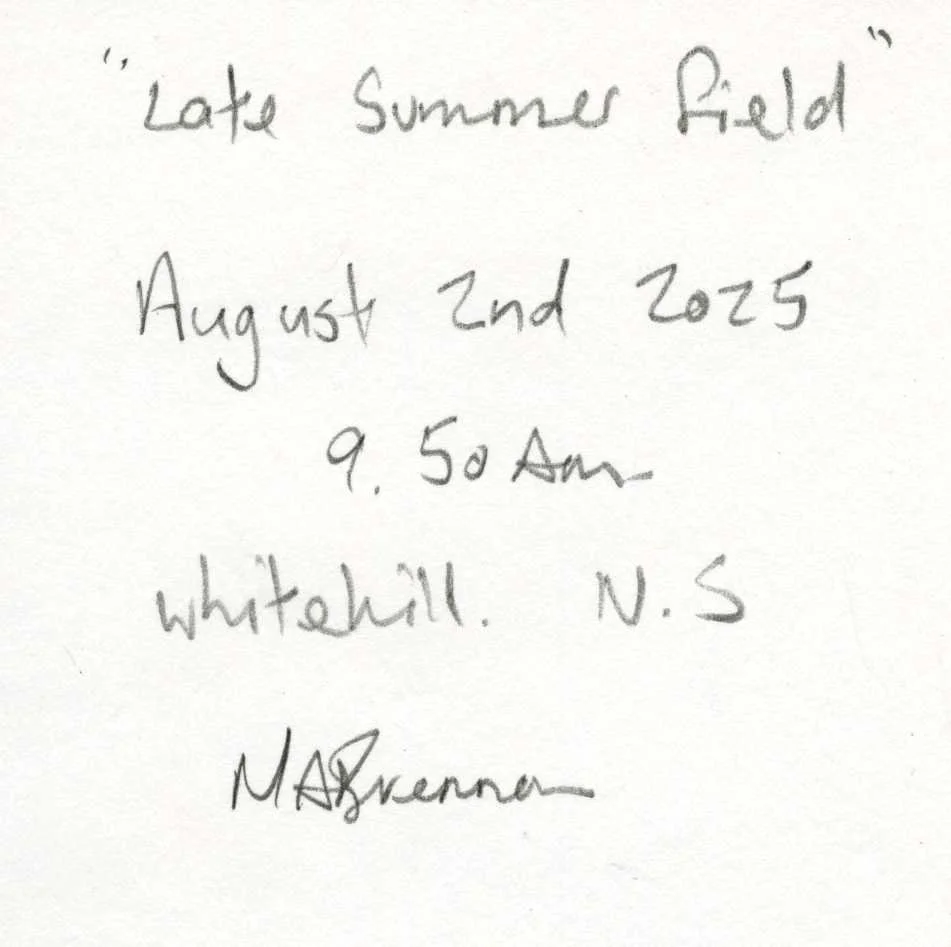 "Late Summer Field"
August 2nd 2025
9.50 Am
Whitehill. N.S
MABrennan